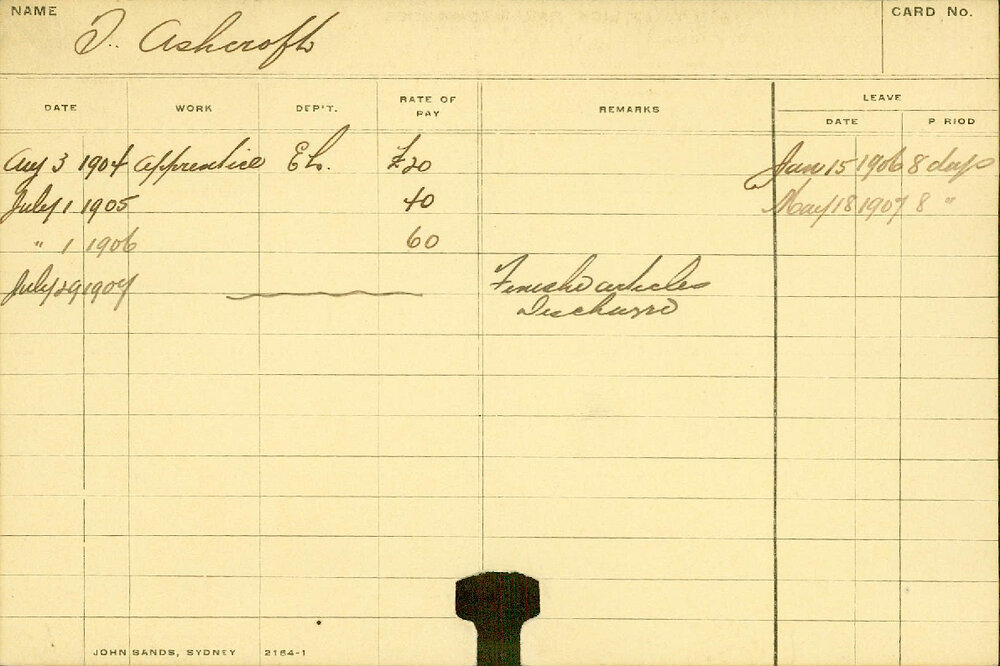 NAME
T. Ashcroft
CARD No.
DATE WORK DEP'T. RATE OF PAY REMARKS LEAVE
DATE P RIOD
Aug 3 1904 Apprentice EL. £20 Jan 15 1906 8 days
July 1 1905 40 May 18 1907 8 "
" 1 1906 60
July 29 1907 Finishd articles
Discharrd
JOHN SANDS, SYDNEY 2164-1